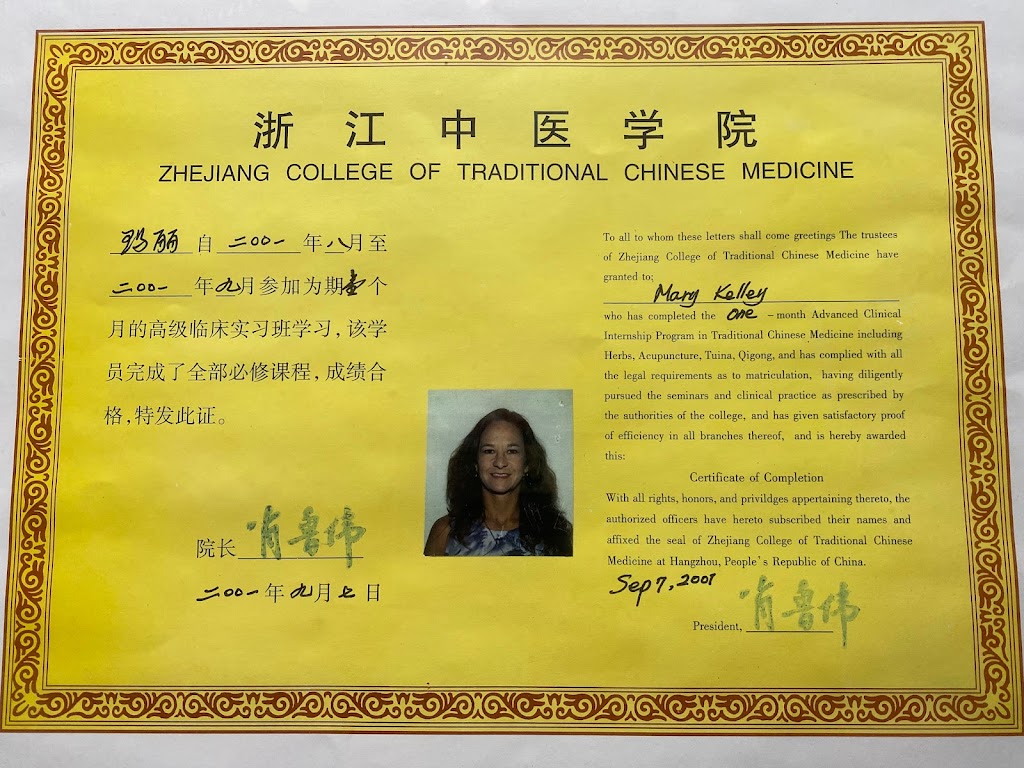 浙江中医学院
ZHEJIANG COLLEGE OF TRADITIONAL CHINESE MEDICINE
玛丽 自 二00一 年八月至
二00一 年九月参加为期壹个
月的高级临床实习班学习，该学
员完成了全部必修课程，成绩合
格，特发此证。
院长 肖鲁伟
二00一年九月七日
To all to whom these letters shall come greetings The trustees
of Zhejiang College of Traditional Chinese Medicine have
granted to;
Mary Kelley
who has completed the one -month Advanced Clinical
Internship Program in Traditional Chinese Medicine including
Herbs, Acupuncture, Tuina, Qigong, and has complied with all
the legal requirements as to matriculation, having diligently
pursued the seminars and clinical practice as prescribed by
the authorities of the college, and has given satisfactory proof
of efficiency in all branches thereof, and is hereby awarded
this:
Certificate of Completion
With all rights, honors, and privildges appertaining thereto, the
authorized officers have hereto subscribed their names and
affixed the seal of Zhejiang College of Traditional Chinese
Medicine at Hangzhou, People's Republic of China.
Sep 7, 2001
President, 肖鲁伟